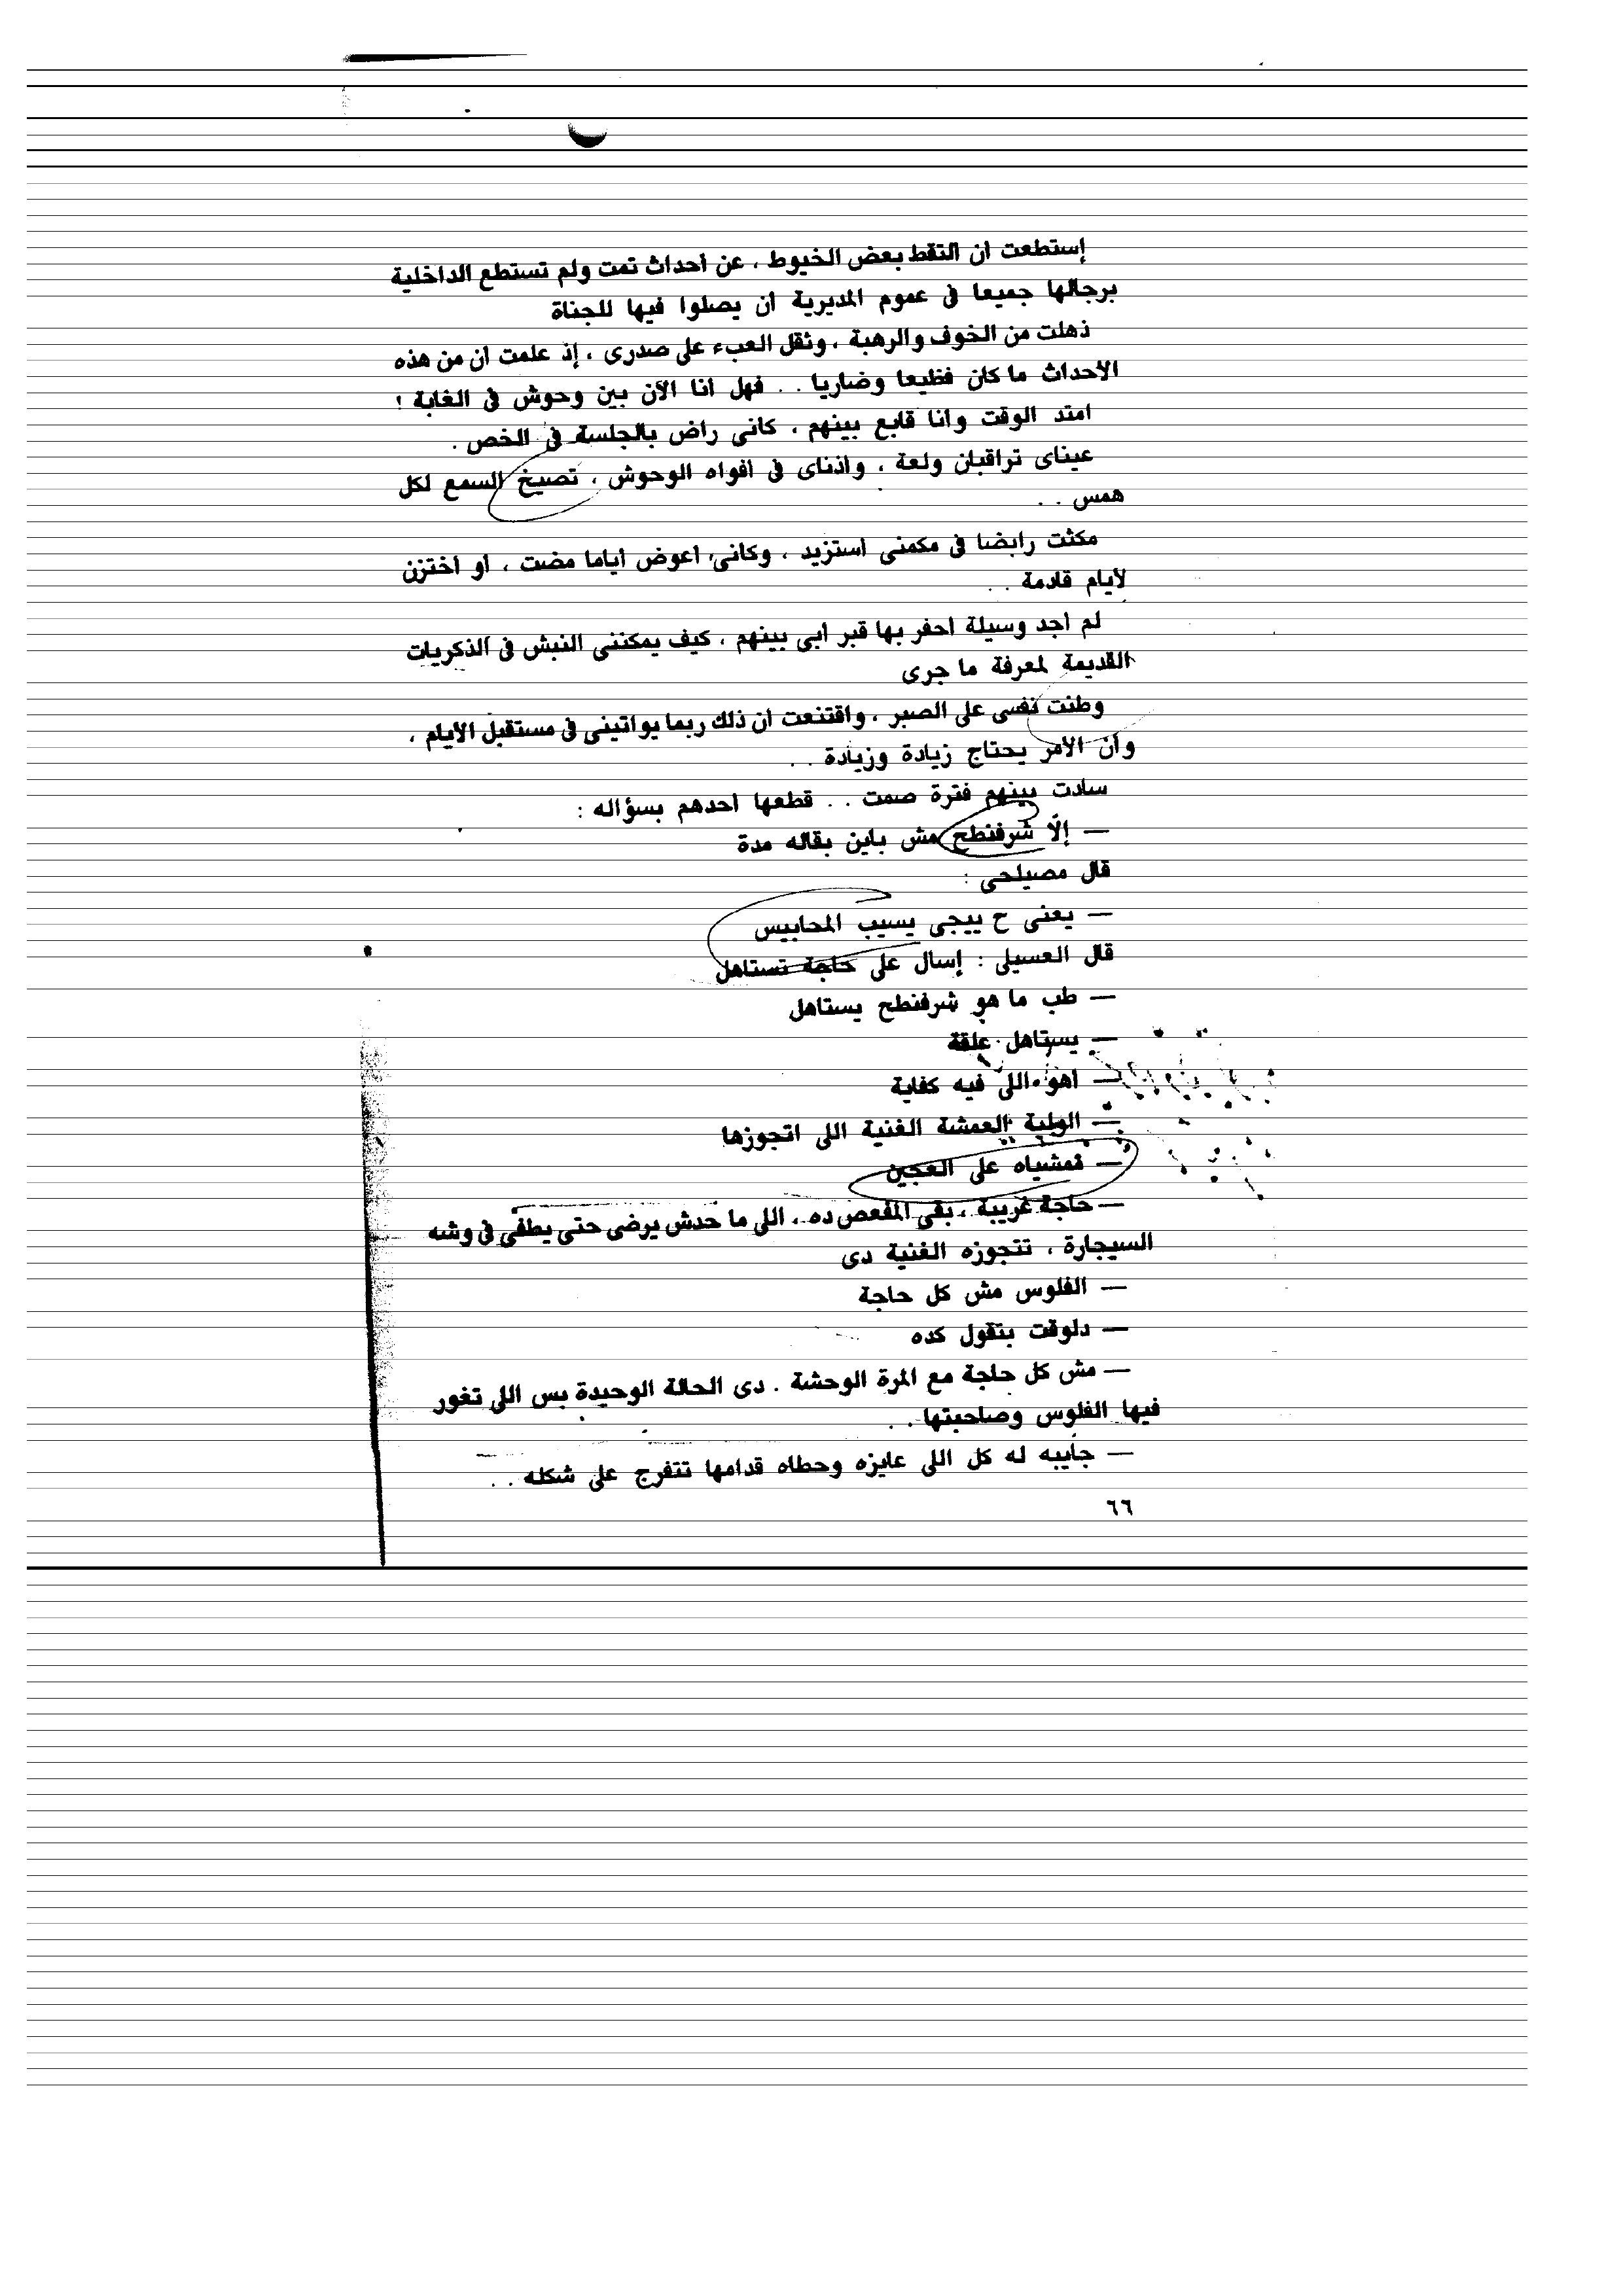 إستطعت ان التقط بعض الخيوط ، عن احداث تمت ولم تستطع الداخلية
برجالها جميعا فى عموم المديرية ان يصلوا فيها للجناة
ذهلت من الخوف والرهبة ، وثقل العبء على صدرى ، إذ علمت ان من هذه
الأحداث ما كان فظيعا وضاريا . . فهل انا الآن بين وحوش فى الغابة !
امتد الوقت وانا قابع بينهم ، كانى راض بالجلسة فى الخص .
عيناى تراقبان ولعة ، واذناى فى افواه الوحوش ، تصيخ السمع لكل
همس . .
مكثت رابضا فى مكمنى استزيد ، وكانى اعوض اياما مضت ، او اختزن
لأيام قادمة . .
لم اجد وسيلة احفر بها قبر ابى بينهم ، كيف يمكننى النبش فى الذكريات
القديمة لمعرفة ما جرى
وطنت نفسى على الصبر ، واقتنعت ان ذلك ربما يواتينى فى مستقبل الأيام ،
وان الأمر يحتاج زيادة وزيادة . .
سادت بينهم فترة صمت . . قطعها احدهم بسؤاله :
— إلّا شرفنطح مش باين بقاله مدة
قال مصيلحى :
— يعنى ح ييجى يسيب المحابيس
قال العسيلى : إسال على حاجة تستاهل
— طب ما هو شرفنطح يستاهل
— يستاهل علقة
— اهو اللى فيه كفاية
— الولية العمشة الغنية اللى اتجوزها
— ممشياه على العجين
— حاجة غريبة ، بقى المفعص ده ، اللى ما حدش يرضى حتى يطفى فى وشه
السيجارة ، تتجوزه الغنية دى
— الفلوس مش كل حاجة
— دلوقت بتقول كده
— مش كل حاجة مع المرة الوحشة . دى الحالة الوحيدة بس اللى تغور
فيها الفلوس وصاحبتها . .
— جايبه له كل اللى عايزه وحطاه قدامها تتفرج على شكله . .
٦٦